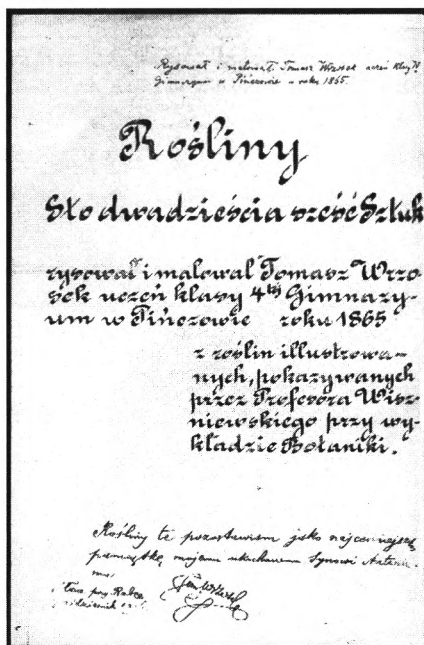 Rysował i malował Tomasz Wrzosek uczeń klasy IV
Gimnazyum w Pińczowie w roku 1865.
Rośliny
Sto dwadzieścia sześć Sztuk
rysował i malował Tomasz Wrzo-
sek uczeń klasy 4tej Gimnazy-
um w Pińczowie roku 1865
z roślin illustrowa-
nych, pokazywanych
przez Profesora Wisz-
niewskiego przy wy-
kładzie Botaniki.
Rośliny te pozostawiam jako najcenniejszą
pamiątkę mojemu ukochanemu Synowi Antonie-
mu
przy Rabce